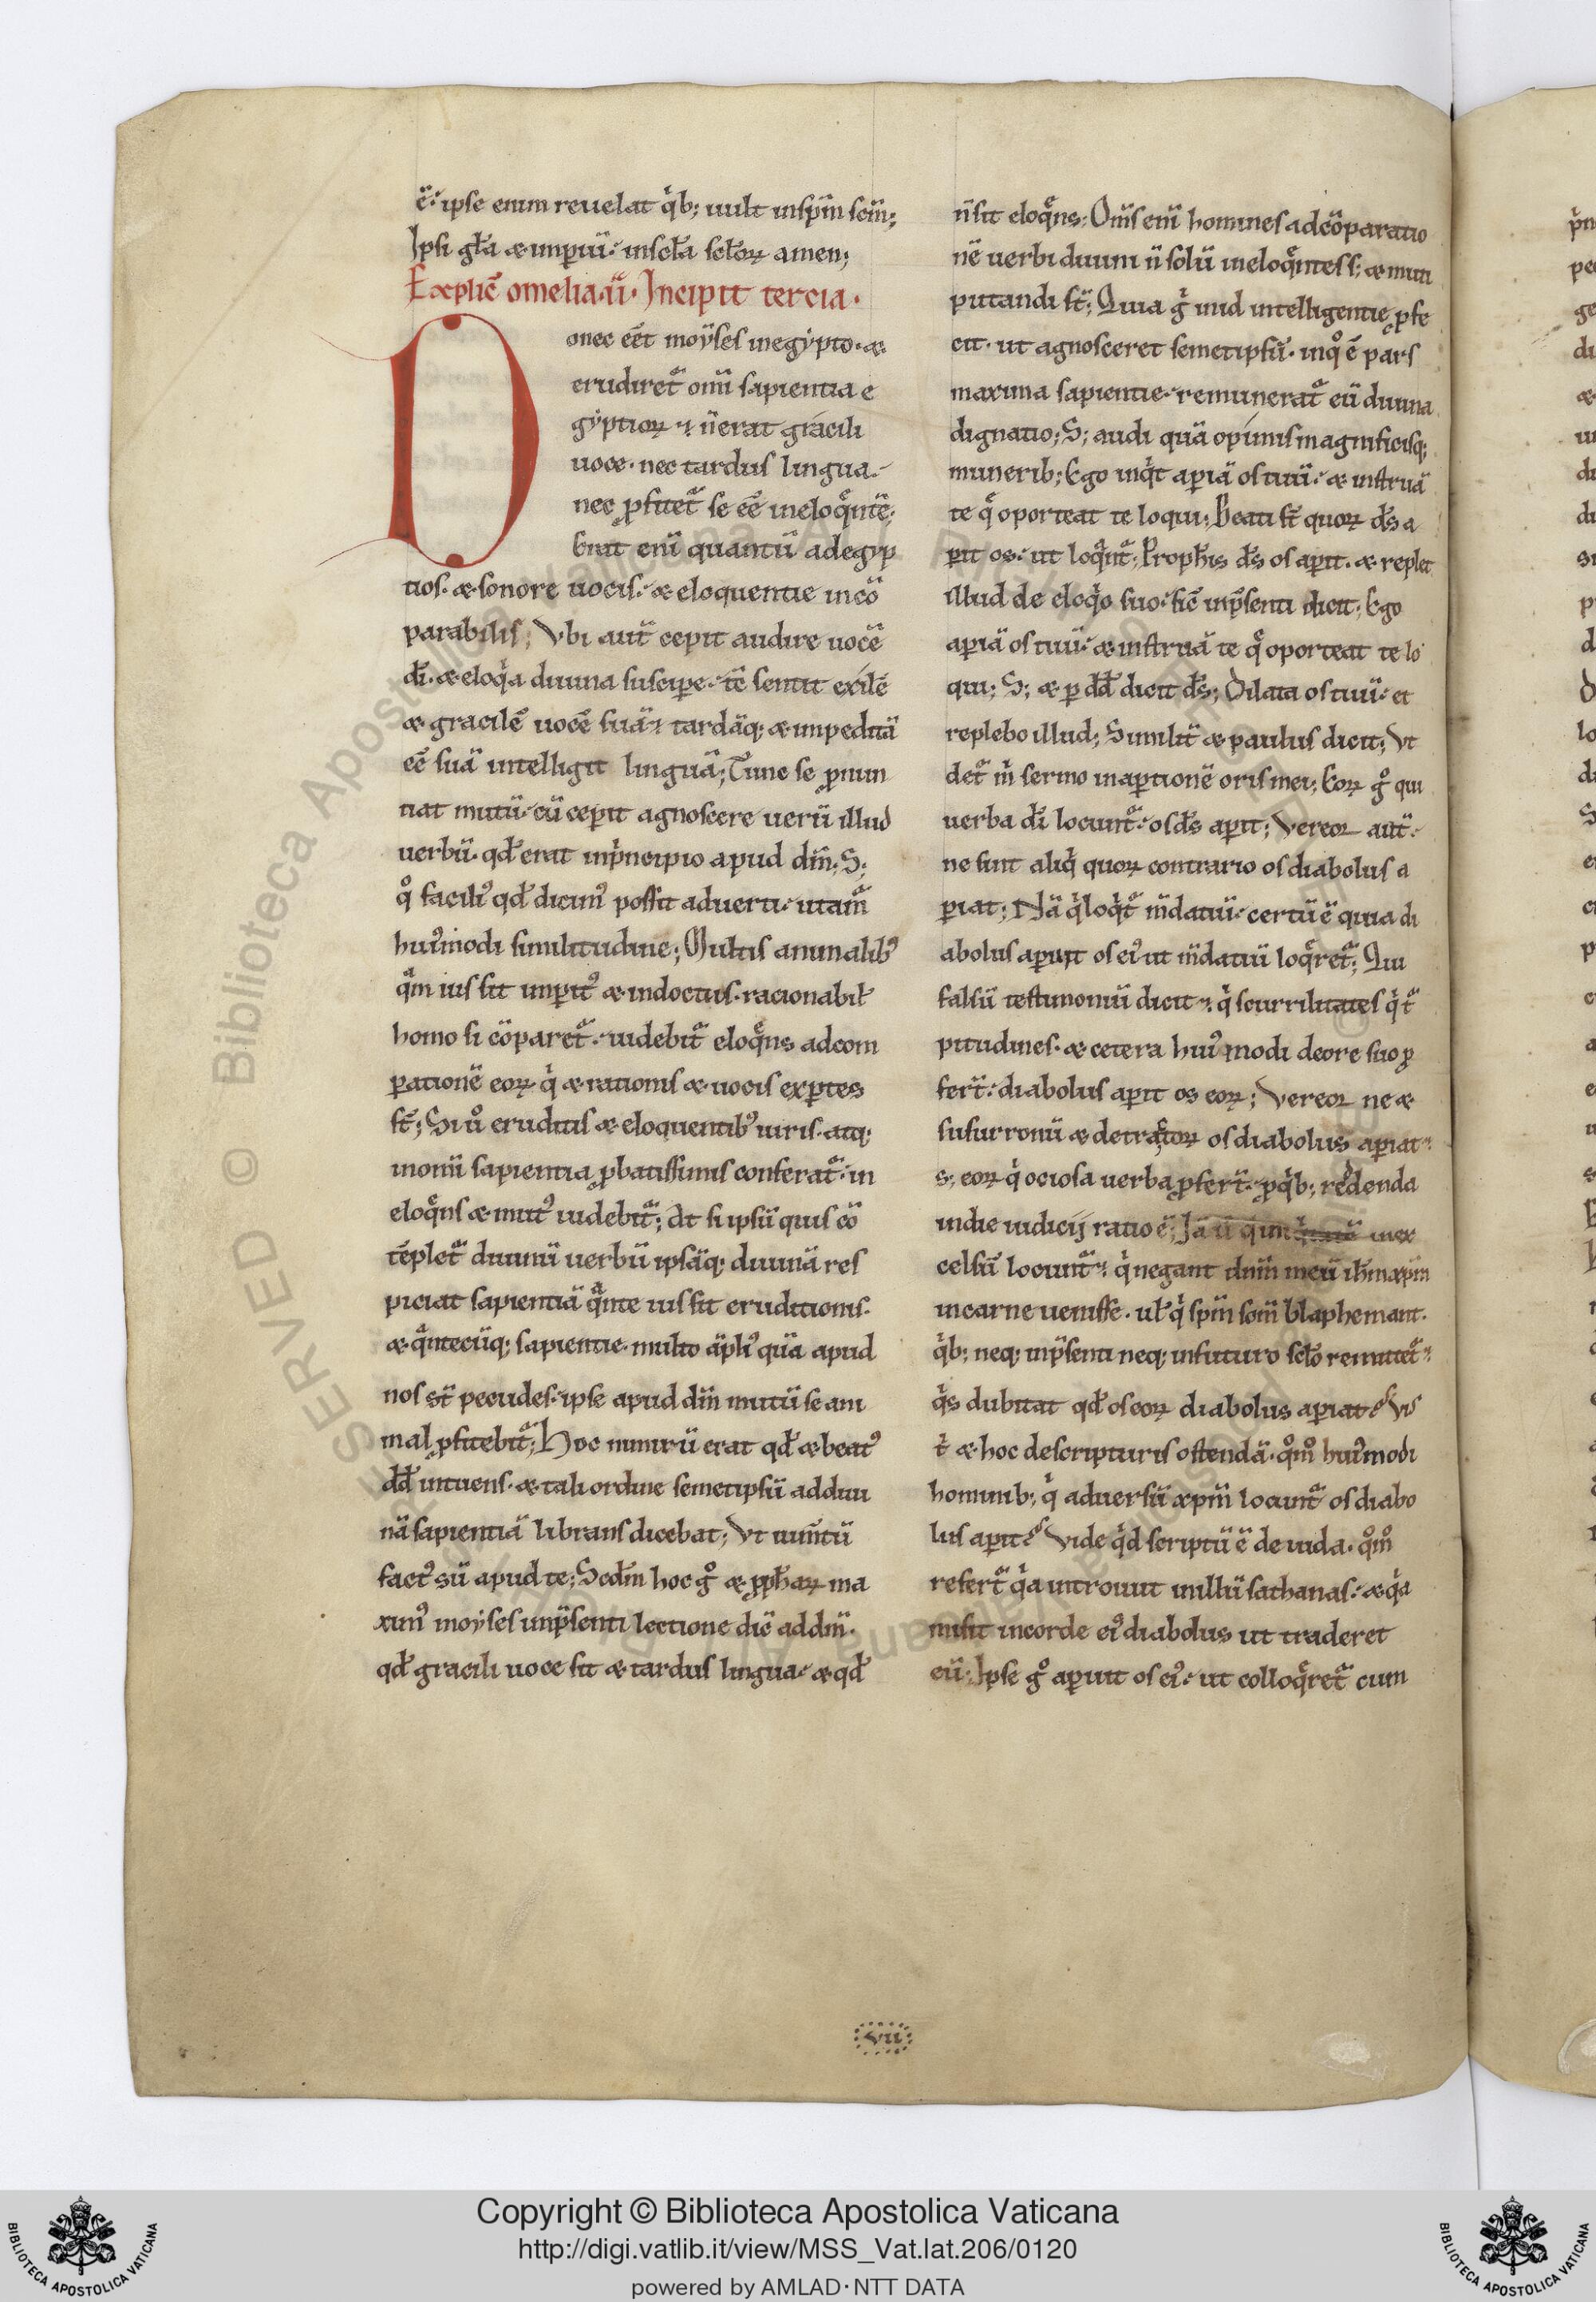 ē. ipse enim reuelat qͥb; uult inspm̄ scm̄;
Ipsi gła & imperiū. inscła scłoꝝ amen;
Explic̄ omelia .ii. Incipit tercia.
Donec eēt moẏses inegẏpto. &
erudiret᷑ omi sapientia e
gẏptioꝝ. n̄ erat gracili
uoce. nec tardus lingua.
nec ꝓfitet᷑ se eē ineloqͣntē.
Erat eni quantū adegyp
tios. & sonore uocis. & eloquentie incō
parabilis; Vbi aut̄ cepit audire uocē
dī. & eloqͥa diuina suscipe. tc̄ sentit exilē
& gracilē uocē suā. tardāq; & impeditā
eē suā intelligit linguā; Tunc se ꝓnun
tiat mutū. cū cepit agnoscere uerū illud
uerbū. qđ erat inpͥncipio apud dm̄; S;
qͦ faciliꝰ qđ dicimꝰ possit aduerti. utam᷑
huiꝰmodi similitudine; Multis animalibꝰ
qͣm ius sit imperitꝰ & indoctus. racionabił
homo si cōparet᷑. uidebit᷑ eloqͣns adcom
ꝑationē eoꝝ qͥ & rationis & uocis exꝑtes
st̄; Si uͦ eruditis & eloquentibꝰ uiris. atq;
inomi sapientia ꝓbatissimis conferat᷑. in
eloqͣns & mutꝰ uidebit᷑; At si ipsū quis cō
tēplet᷑ diuinū uerbū ipsāq; diuinā res
piciat sapientiā qͣnte ius sit eruditionis.
& qͣntecūq; sapientie. multo āpliꝰ quā apud
nos st̄ pecudes. ipse apud dm̄ mutū se ani
mal ꝓfitebit᷑; Hoc nimirū erat qđ & beatꝰ
dđ intuens. & tali ordine semetipsū ad diui
nā sapientiā librans dicebat; Vt iumtū
factꝰ sū apud te; Scdm̄ hoc gͦ & ꝓphaꝝ ma
ximꝰ moẏses inp̄senti lectione dic̄ addm̄.
qđ gracili uoce sit & tardus lingua. & qđ
n̄ sit eloqͣns; Om̄s eni homines adcōparatio
nē uerbi diuini n̄ solū ineloqͣntes s; & muti
putandi st̄; Quia gͥ intelligentie ꝓfe
cit. ut agnosceret semetipsū. inqͦ ē pars
maxima sapientie. remunerat᷑ eū diuina
dignatio; S; audi quā opimis magnificisq;
munerib; Ego inqͥt aperiā os tuū. & instruā
te qͣ oporteat te loqui; Beati st̄ quoꝝ ds̄ a
perit os. ut loqͣnt᷑; Prophis ds̄ os aperit. & replet
illud de eloqͥo suo. sic̄ inp̄senti dicit; Ego
aperiā os tuū. & instruā te qͣ oporteat te lo
qui; S; & p dđ dicit ds̄; Dilata os tuū. et
replebo illud; Similit᷑ & paulus dicit; Vt
det᷑ mͥ sermo inapertionē oris mei; Eoꝝ gͦ qui
uerba dī locunt᷑. os ds̄ aperit; Vereor aut̄.
ne sint aliqͥ quoꝝ contrario os diabolus a
periat; Nā qͥ loqͥt᷑ mdatiū. certū ē quia di
abolus aperuit os eiꝰ ut mdatiū loqͣret᷑; Qui
falsū testimoniū dicit. qͥ scurrilitates qͥ t᷑
pitudines. & cetera huiꝰmodi deore suo ꝓ
fert̄. diabolus aperit os eoꝝ; Vereor ne &
susurronū & detractoꝝ os diabolus aperiat.
s; eoꝝ qͥ ociosa uerba ꝓfert̄. ꝓ qͥb; reddenda
indie iudicij ratio ē; Iā ū qͥ in inex
celsū locunt᷑. qͥ negant dnm̄ meū ihm xpm̄
incarne uenisse. uł qͥ spm̄ scm̄ blaphemant.
qͥb; neq; inp̄senti neq; infuturo scło remittet᷑.
qͥs dubitat qđ os eoꝝ diabolus aperiat? Vis
tͥ & hoc descripturis ostendā. qͦmͦ huiꝰmodi
hominib; qͥ aduersū xpm̄ locunt᷑ os diabo
lus aperit? Vide qͥd scriptū ē de iuda. qͦmͦ
refert᷑ qͥa introiuit inillū sathanas. & qͥa
misit incorde eiꝰ diabolus ut traderet
eū; Ipse gͦ aperuit os eiꝰ. ut colloqͣret᷑ cum
vii
Copyright © Biblioteca Apostolica Vaticana
http://digi.vatlib.it/view/MSS_Vat.lat.206/0120
powered by AMLAD·NTT DATA
BIBLIOTECA APOSTOLICA VATICANA
BIBLIOTECA APOSTOLICA VATICANA